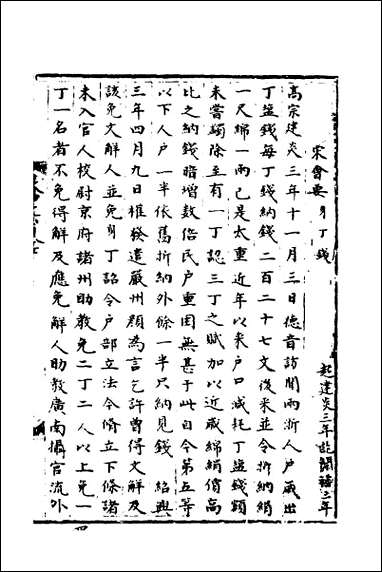 宋會要 身丁錢
起建炎三年訖開禧二年
高宗建炎三年十一月三日德音訪聞兩浙人戶歲出
丁鹽錢每丁錢納錢二百二十七文後來並令折納絹
一尺綿一兩已是太重近年以來戶口減耗丁鹽錢額
未嘗蠲除至有一丁認三丁之賦加以近歲綿絹價高
比之納錢暗增數倍民戶重困無甚于此自今第五等
以下人戶一半依舊折納外餘一半只納見錢 紹興
三年四月九日權發遣嚴州顏為言乞許曾得文解及
該免文解人並免身丁詔令戶部立法今脩立下條諸
未入官人校尉京府諸州助教免二丁二人以上免一
丁一名者不免得解及應免解人助教廣南攝官流外
四